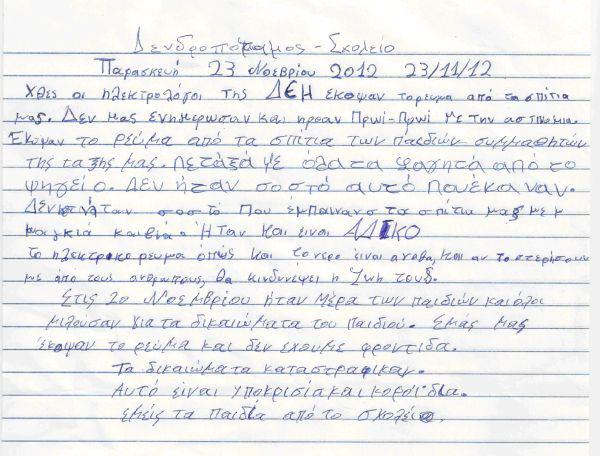 Δενδροπόταμος - Σχολείο
Παρασκευή 23 Νοεβρίου 2012 23/11/12
Χθες οι ηλεκτρολόγοι της ΔΕΗ έκοψαν τορευμα από τα σπίτια
μας. Δεν μας ενημερωσαν και ηρθαν πρωί-πρωί με την αστυνομία.
Έκοψαν το ρεύμα από τα σπίτια των παιδιών συμμαθητών
της τάξης μας. Πετάξαμε ολα τα φαγητά από το
ψηγείο. Δεν ήταν σοστό αυτό πουέκαναν.
Δεν ήταν σοστό που έμπαιναν στα σπίτια μας με
μαγκιά και βία. Ήταν και είναι ΑΔΙΚΟ
το ηλεκτρικο ρευμα όπως και το νερο είναι αγαθα, και αν το στερήσουν
με από τους ανθρωπους, θα κινδυνέψει η ζωη τους.
Στις 20 Νοεμβρίου ήταν μέρα των παιδιών και όλοι
μιλουσαν για τα δικαιώματα του παιδιού. Εμάς μας
έκοψαν το ρεύμα και δεν έχουμε φροντιδα.
Τα δικαιώματα καταστραφικαν.
Αυτό είναι υποκρισία και κοροϊδία.
εμείς τα παιδιά από το σχολείο.